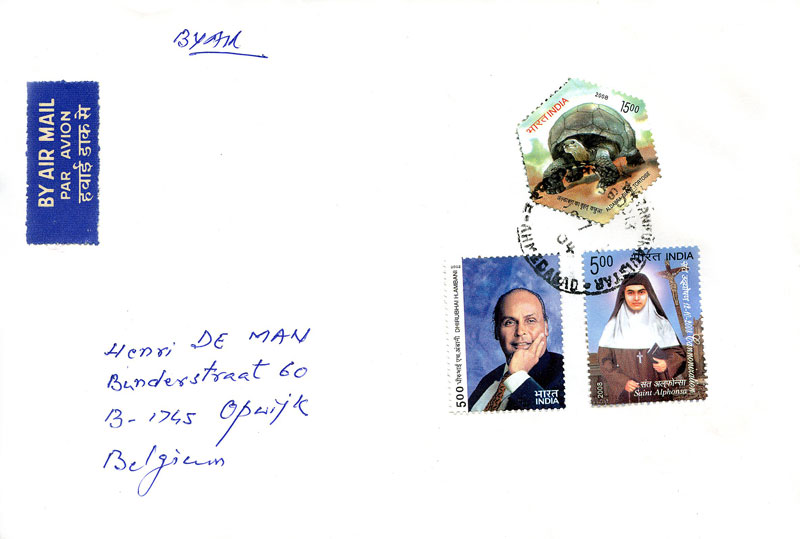 BY AIR
BY AIR MAIL
PAR AVION
हवाई डाक से
भारत INDIA
2008
15.00
ALDABRA GIANT TORTOISE
AHMEDABAD
04
500 धीरूभाई एच. अंबानी DHIRUBHAI H. AMBANI
भारत
INDIA
5.00
भारत INDIA
Canonization
संत अल्फोन्सा
Saint Alphonsa
2008
Henri DE MAN
Binderstraat 60
B-1745 Opwijk
Belgium